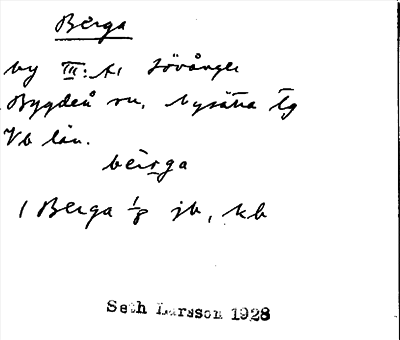 Berga
by III:A1 Lövånger
Bygdeå sn. Nysätra tg
Vb län.
bèrga
1 Berga 1/8 jb, kb
Seth Larsson 1928